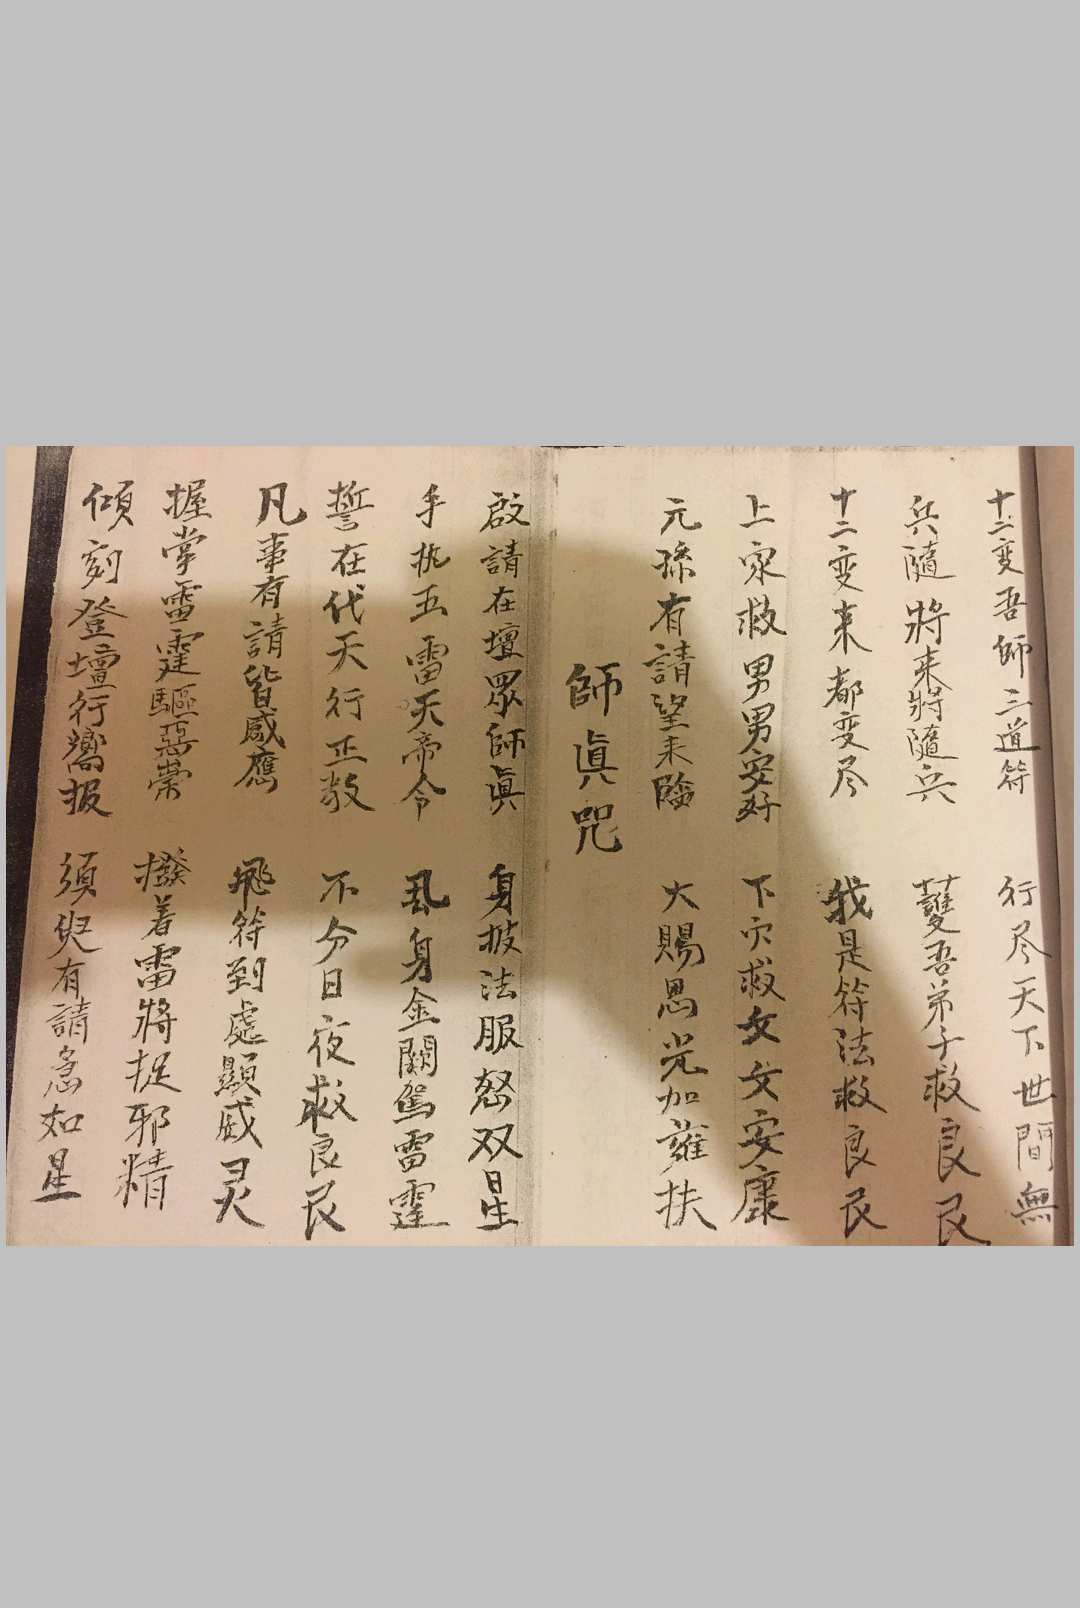 十二变吾師三道符 行尽天下世間無
兵隨將来將隨兵 護吾弟子救良民
十二变来都变尽 我是符法救良民
上家救男男安好 下穴救女女安康
元孫有請望来臨 大賜恩光加雍扶
師眞咒
啟請在壇眾師眞 身披法服怒双星
手执五雷天帝令 身金闕駕雷霆
誓在代天行正教 不分日夜救良民
凡事有請皆感應 飛符到處顯威灵
握掌雷霆驅惡祟 撥着雷將捉邪精
傾刻登壇行嚮报 須臾有請急如星